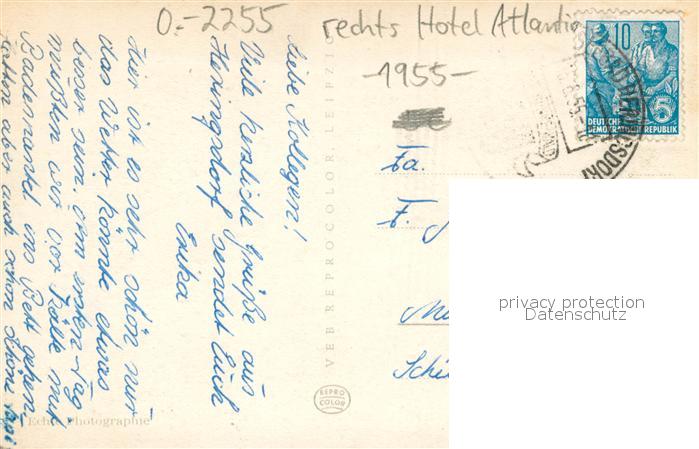 O.-2255
rechts Hotel Atlantic
-1955-
10
5
DEUTSCHE
DEMOKRATISCHE REPUBLIK
Liebe Kollegen!
Viele herzliche Grüße aus
Heringsdorf sendet Euch
Erika
Hier ist es sehr schön nur
das Wetter könnte etwas
besser sein. Am ersten Tag
mußten wir vor Kälte mit
Bademantel ins Bett gehen.
aber auch schon
Fa.
F.
VEB REPROCOLOR LEIPZIG
REPRO
COLOR
Echte Photographie
privacy protection
Datenschutz